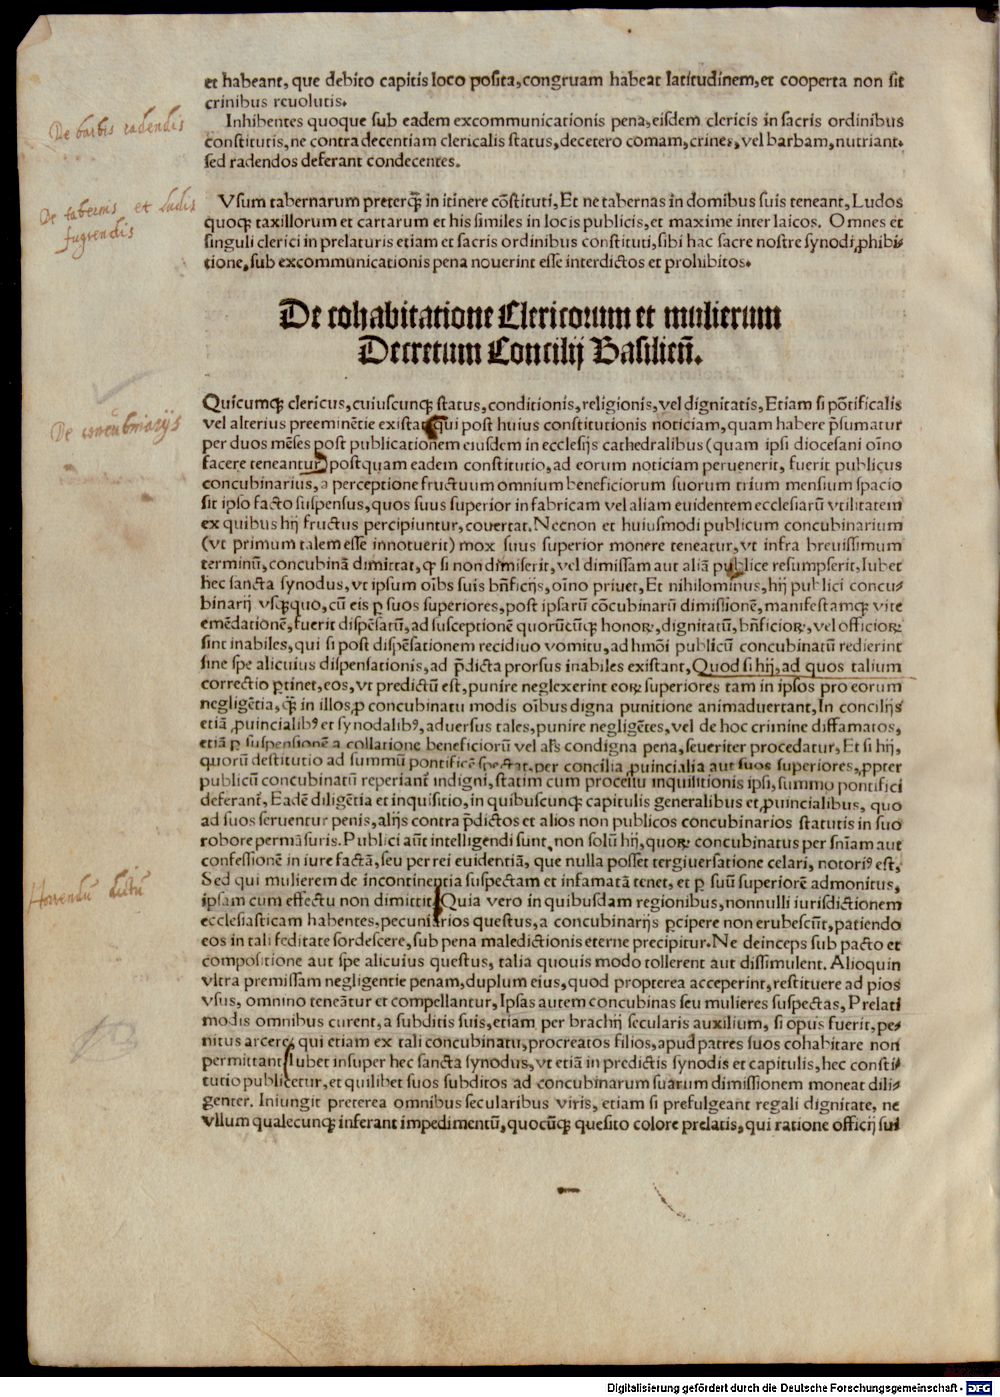 et habeant, que debito capitis loco posita, congruam habeat latitudinem, et cooperta non sit
crinibus reuolutis.
De barbis radendis
Inhibentes quoque sub eadem excommunicationis pena, eisdem clericis in sacris ordinibus
constitutis, ne contra decentiam clericalis status, decetero comam, crines, vel barbam, nutriant.
sed radendos deferant condecentes.
De tabernis et ludis
fugiendis
Vsum tabernarum preterq̃ in itinere cõstituti, Et ne tabernas in domibus suis teneant, Ludos
quoqꝫ taxillorum et cartarum et his similes in locis publicis, et maxime inter laicos. Omnes et
singuli clerici in prelaturis etiam et sacris ordinibus constituti, sibi hac sacre nostre synodi ꝓhibi-
tione, sub excommunicationis pena nouerint esse interdictos et prohibitos.
De cohabitatione Clericorum et mulierum
Decretum Concilij Basilień.
De concubinarijs
Quicumqꝫ clericus, cuiuscunqꝫ status, conditionis, religionis, vel dignitatis, Etiam si põtificalis
vel alterius preeminẽtie existat, qui post huius constitutionis noticiam, quam habere p̃sumatur
per duos mẽses post publicationem eiusdem in ecclesijs cathedralibus (quam ipsi diocesani oĩno
facere teneantur) postquam eadem constitutio, ad eorum noticiam peruenerit, fuerit publicus
concubinarius, a perceptione fructuum omnium beneficiorum suorum trium mensium spacio
sit ipso facto suspensus, quos suus superior in fabricam vel aliam euidentem ecclesiarũ vtilitatem
ex quibus hij fructus percipiuntur, cõuertat. Necnon et huiusmodi publicum concubinarium
(vt primum talem esse innotuerit) mox suus superior monere teneatur, vt infra breuissimum
terminũ, concubinã dimittat, qꝫ si non dimiserit, vel dimissam aut aliã publice resumpserit, Iubet
hec sancta synodus, vt ipsum oĩbs suis bñficijs, oĩno priuet, Et nihilominus, hij publici concu-
binarij vsqꝫquo, cũ eis ꝑ suos superiores, post ipsarũ cõcubinarũ dimissionẽ, manifestamqꝫ vite
emẽdationẽ, fuerit dispẽsatũ, ad susceptionẽ quorũcũqꝫ honoꝝ, dignitatũ, bñficioꝝ, vel officioꝝ
sint inabiles, qui si post dispẽsationem recidiuo vomitu, ad hmõi publicũ concubinatũ redierint
sine spe alicuius dispensationis, ad p̃dicta prorsus inabiles existant, Quod si hij, ad quos talium
correctio ꝑtinet, eos, vt predictũ est, punire neglexerint eoꝝ superiores tam in ipsos pro eorum
negligẽtia, q̃ in illos, ꝓ concubinatu modis oĩbus digna punitione animaduertant, In concilijs
etiã ꝓuincialibꝰ et synodalibꝰ, aduersus tales, punire negligẽtes, vel de hoc crimine diffamatos,
etiã ꝑ suspensionẽ a collatione beneficiorũ vel al's condigna pena, seueriter procedatur, Et si hij,
quorũ destitutio ad summũ pontificẽ spectat, per concilia ꝓuincialia aut suos superiores, ꝓpter
publicũ concubinatũ reperiant̃ indigni, statim cum processu inquisitionis ipsi, summo pontifici
deferant̃, Eadẽ diligẽtia et inquisitio, in quibuscunqꝫ capitulis generalibus et ꝓuincialibus, quo
ad suos seruentur penis, alijs contra p̃dictos et alios non publicos concubinarios statutis in suo
robore permãsuris. Publici aũt intelligendi sunt, non solũ hij, quoꝝ concubinatus per sñiam aut
confessionẽ in iure factã, seu per rei euidentiã, que nulla posset tergiuersatione celari, notoriꝰ est,
Horrendũ dictũ
Sed qui mulierem de incontinentia suspectam et infamatã tenet, et ꝑ suũ superiorẽ admonitus,
ipsam cum effectu non dimittit. Quia vero in quibusdam regionibus, nonnulli iurisdictionem
ecclesiasticam habentes, pecuniarios questus, a concubinarijs ꝑcipere non erubescũt, patiendo
eos in tali feditate sordescere, sub pena maledictionis eterne precipitur. Ne deinceps sub pacto et
compositione aut spe alicuius questus, talia quouis modo tollerent aut dissimulent. Alioquin
vltra premissam negligentie penam, duplum eius, quod propterea acceperint, restituere ad pios
vsus, omnino teneãtur et compellantur, Ipsas autem concubinas seu mulieres suspectas, Prelati
modis omnibus curent, a subditis suis, etiam per brachij secularis auxilium, si opus fuerit, pe-
nitus arcere, qui etiam ex tali concubinatu, procreatos filios, apud patres suos cohabitare non
permittant. Iubet insuper hec sancta synodus, vt etiã in predictis synodis et capitulis, hec consti-
tutio publicetur, et quilibet suos subditos ad concubinarum suarum dimissionem moneat dili-
genter. Iniungit preterea omnibus secularibus viris, etiam si prefulgeant regali dignitate, ne
vllum qualecunqꝫ inferant impedimentũ, quocũqꝫ quesito colore prelatis, qui ratione officij sui
Digitalisierung gefördert durch die Deutsche Forschungsgemeinschaft - DFG